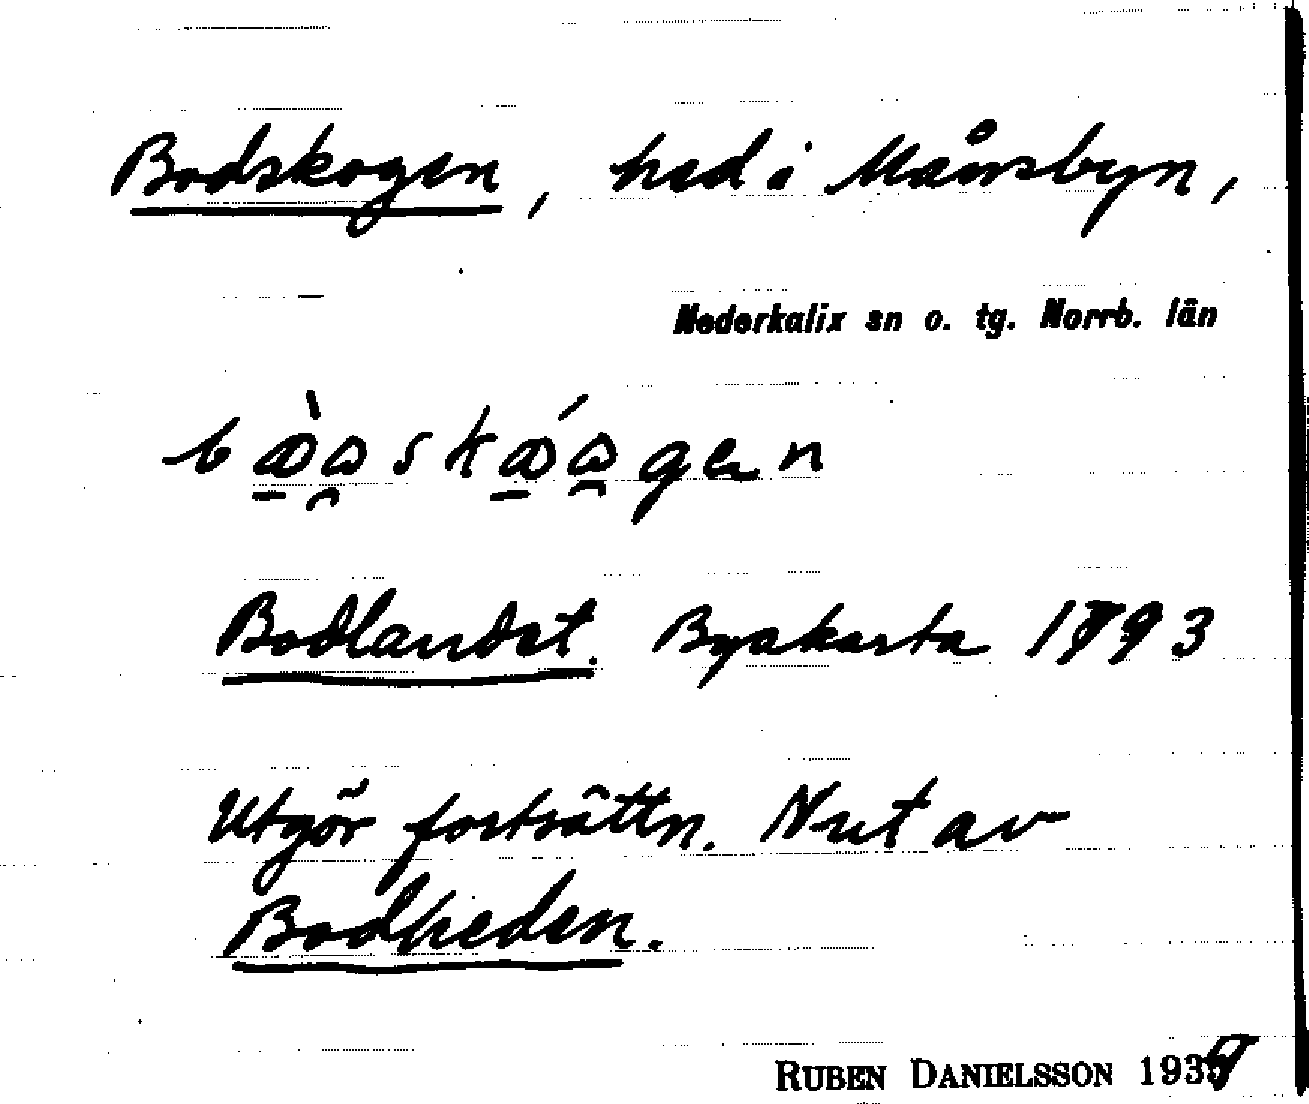 Bodskogen, hed i Månsbyn,
Nederkalix sn o. tg. Norrb. län
Bodlandet. Byakarta 1793
Utgör fortsättn. N ut av
Bodheden.
RUBEN DANIELSSON 1939